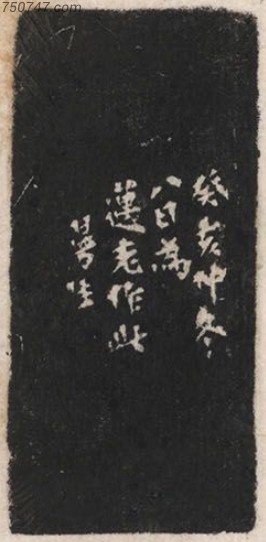 750747.com
癸亥仲冬
八日為
蓮老作此
曼生